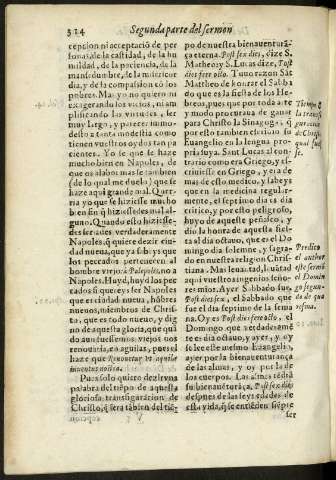 314
Segunda parte del sermon
cepcion ni acceptacio de per
sonas, de la castidad, de la hu
mildad, de la paciencia, de la
mansedumbre, de la misericor
dia, y de la compasion cō los
pobres. Mas yo no quiero ni
exagerando los vicios, ni am
plificando las virtudes, ser
muy largo, y parecer inmo-
desto a tanta modestia como
tienen vuestros oydos tan pa
cientes. Yo se que se haze
mucho bien en Napoles, de
que os alabo: mas se tambien
(de lo qual me duelo) que se
haze aqui grande mal. Quer-
ria yo que se hiziesse mucho
bien sin q̄ hiziessedes mal al-
guno. Quando esto hiziesse-
des sereades verdaderamente
Napoles, q̄ quiere dezir ciu-
dad nueua, que ya sabeys que
los pecados pertenecen al
hombre viejo: à Palepolis, no a
Napoles. Huyd, huyd los pec
cados si quereys ser Napoles
que es ciudad nueua, hōbres
nueuos, miembros de Chris-
to, que es todo nueuo, y dig
no de aquesta gloria, que quā
do aun fuessemos viejos nos
renouaria, eo aguilas, pues el
haze que Renouetur vt aquilæ
iuuentus nostra.
Pues solo quiero deziros vna
palabra del tiēpo de aquesta
gloriosa transfiguracion de
Christo, q̄ sera tābien del tiē-
po de nuestra bienauenturā-
ça eterna. Post dies sex, dize S.
Matheo: y S. Lucas dize, Post
dies fere octo. Tuuo razon San
Mattheo de contar el Sabba
do que es la fiesta de los He-
breos, pues que por toda arte
y modo procuraua de ganar
para Christo la Sinagoga, q̄
por esto tambien escriuio su
Euangelio en la lengua pro-
pria suya. Sant Lucas al con-
trario como era Griego, y es-
criuiesse en Griego, y era de
mas de esto medico, y sabeys
que en la medicina regular-
mente, el septimo dia es dia
critico, y por esto peligroso,
huyo de aqueste pensamiēto, y
dio la honra de aquesta fies-
ta al dia octauo, que es el Do
mingo dia solemne, y sagra-
do en nuestra religion Chris-
tiana. Mas leuantad, leuātad
aqui vuestros ingenios señores
mios. Ayer Sabbado fue,
Post dies sex, el Sabbado que
fue el dia septimo de la sema
na. Oy es Post dies fere octo, el
Domingo que verdaderamē-
te es dia octauo, y ayer, y oy
se lee este mesmo Euangelio,
ayer por la bienauenturança
de las almas, y oy por la de
los cuerpos. Las almas tēdrā
su bienauenturāça, Post sex dies
despues de las seys edades de
esta vida, q̄ se entiēden siēpre
ser
Perdico
el author
este sermō
el Domin
go segun-
da de qua
resma.